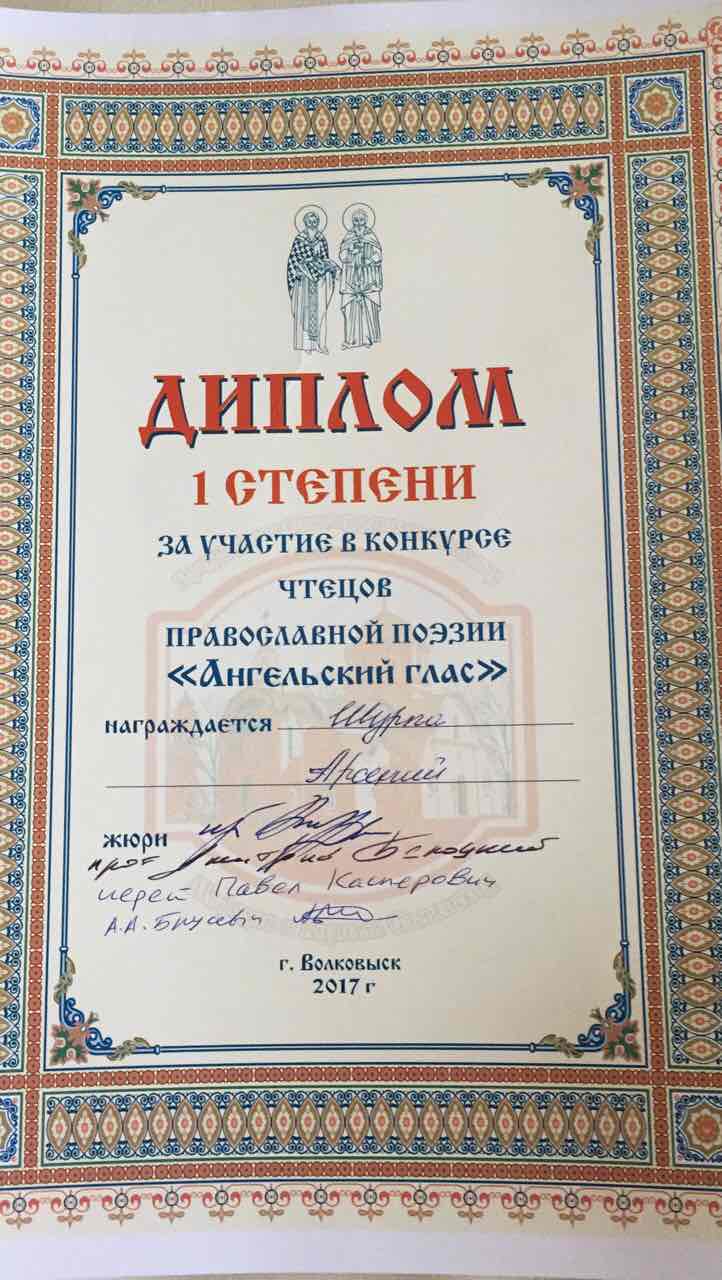 ДИПЛОМ
1 СТЕПЕНИ
ЗА УЧАСТИЕ В КОНКУРСЕ
ЧТЕЦОВ
ПРАВОСЛАВНОЙ ПОЭЗИИ
«Ангельский глас»
награждается Шурпа
Арсений
жюри
прот Дмитрий
иерей Павел Касперович
А.А. Брусевич
г. Волковыск
2017 г